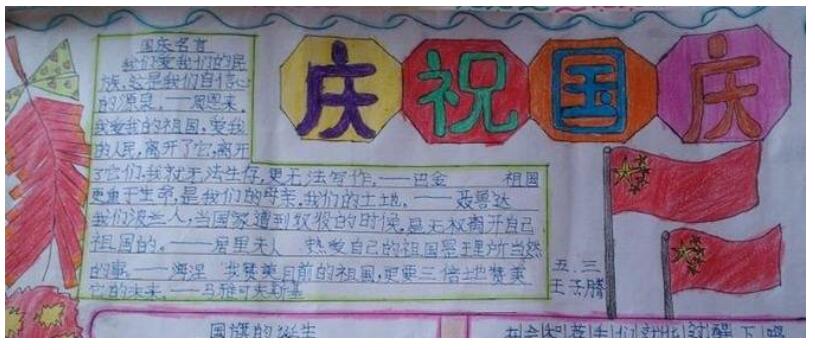 庆祝国庆
国庆名言
我们爱我们的民
族,这是我们自信心
的源泉。——周恩来
我爱我的祖国,爱我
的人民,离开了它,离开
了它们,我就无法生存,更无法写作。——巴金 祖国
更重于生命,是我们的母亲,我们的土地。——聂鲁达
我们波兰人,当国家遭到奴役的时候,是无权离开自己
祖国的。——居里夫人 热爱自己的祖国是理所当然
的事。——海涅 我赞美目前的祖国,更要三倍地赞美
它的未来。——马雅可夫斯基
五.三
王子腾
国旗的诞生